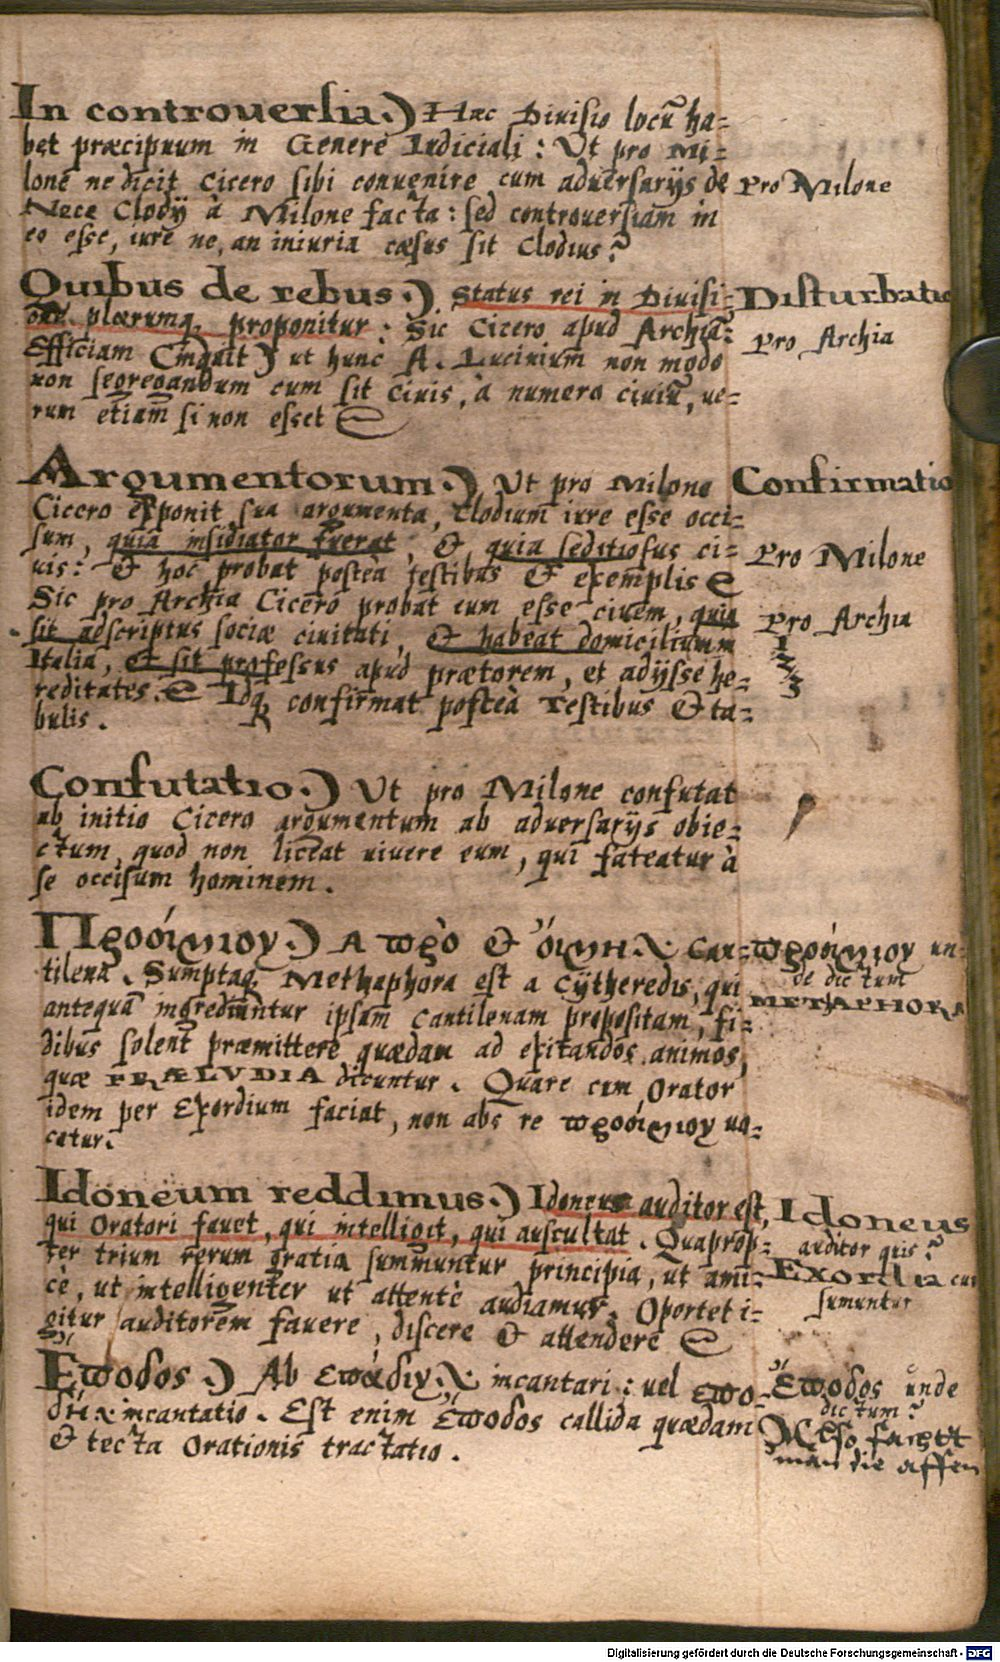 In controuersia.) Hæc Diuisio locũ ha=
bet præcipuum in Genere Iudiciali : Ut pro Mi=
lone ne dicit Cicero sibi conuenire cum aduersarijs de
Pro Milone
Nece Clodij à Milone facta : sed controuersiam in
eo esse, iure ne, an iniuria cæsus sit Clodius?
Quibus de rebus.) Status rei in Diuisi=
Disturbatio
one plerumq, proponitur : Sic Cicero apud Archiã:
Pro Archia
Efficiam (inquit) ut hunc A. Lucinium non modo
non segregandum cum sit Ciuis, à numero ciuiũ, ue=
rum etiam si non esset
Argumentorum.) Ut pro Milone
Confirmatio
Cicero exponit sua argumenta, Clodium iure esse occi=
sum, quia insidiator fuerat, & quia seditiosus ci=
Pro Milone
uis : & hoc probat posteà testibus & exemplis
Sic pro Archia Cicero probat eum esse ciuem, quia
Pro Archia
sit adscriptus sociæ ciuitati, & habeat domicilium in
1
Italia, & sit professus apud prætorem, et adijsse he=
2
3
reditates. Idq, confirmat posteà Testibus & ta=
bulis.
Confutatio.) Ut pro Milone confutat
ab initio Cicero argumentum ab aduersarijs obie=
ctum, quod non liceat uiuere eum, qui fateatur à
se occisum hominem.
Προόιμιου.) A πρὸ & ὄιμη. Can=
προόιμιου un=
tilena. Sumptaq, Methaphora est a Cytheredis, qui
de dictum
antequã ingrediuntur ipsam Cantilenam propositam, fi=
METAPHORA
dibus solent præmittere quædam ad exitandos animos,
quæ PRÆLVDIA dicuntur. Quare cum Orator
idem per Exordium faciat, non abs re προόιμιου uo=
catur.
Idoneum reddimus.) Idoneus auditor est,
Idoneus
qui Oratori fauet, qui intelligit, qui auscultat. Quaprop=
auditor quis?
ter trium rerum gratia summuntur principia, ut ami=
Exordia cur
cè, ut intelligenter ut attentè audiamur. Oportet i=
sumuntur
gitur auditorem fauere, discere & attendere
Ἔϖοδος.) Ab incantari : uel εϖο=
Ἔϖοδος unde
δη incantatio. Est enim Ἔϖοδος callida quædam
dictum?
& tecta Orationis tractatio.
Also
man die affen